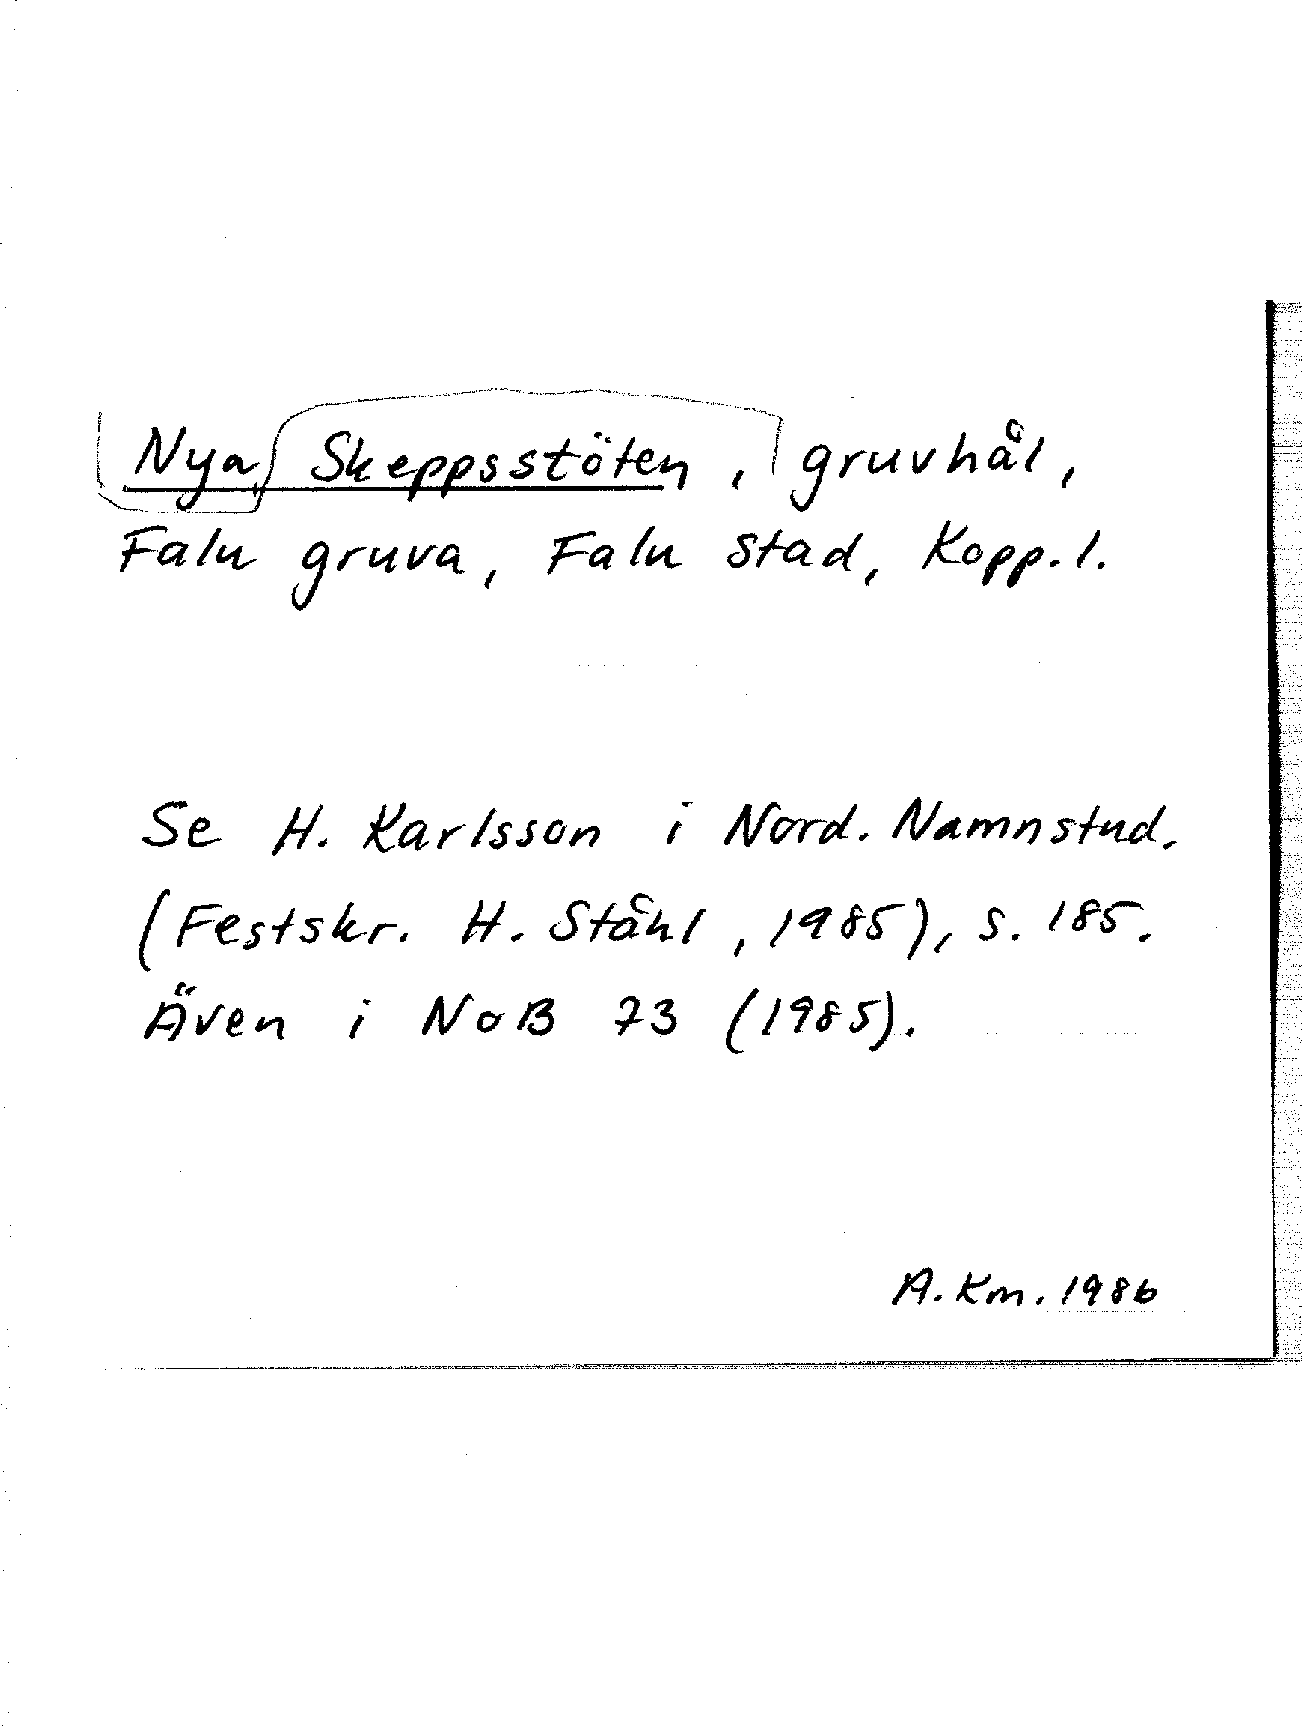 Nya Skeppsstöten, gruvhål,
Falu gruva, Falu stad, Kopp. l.
Se H. Karlsson i Nord. Namnstud.
(Festskr. H. Ståhl, 1985), s. 185.
Även i NoB 73 (1985).
A. Km. 1986